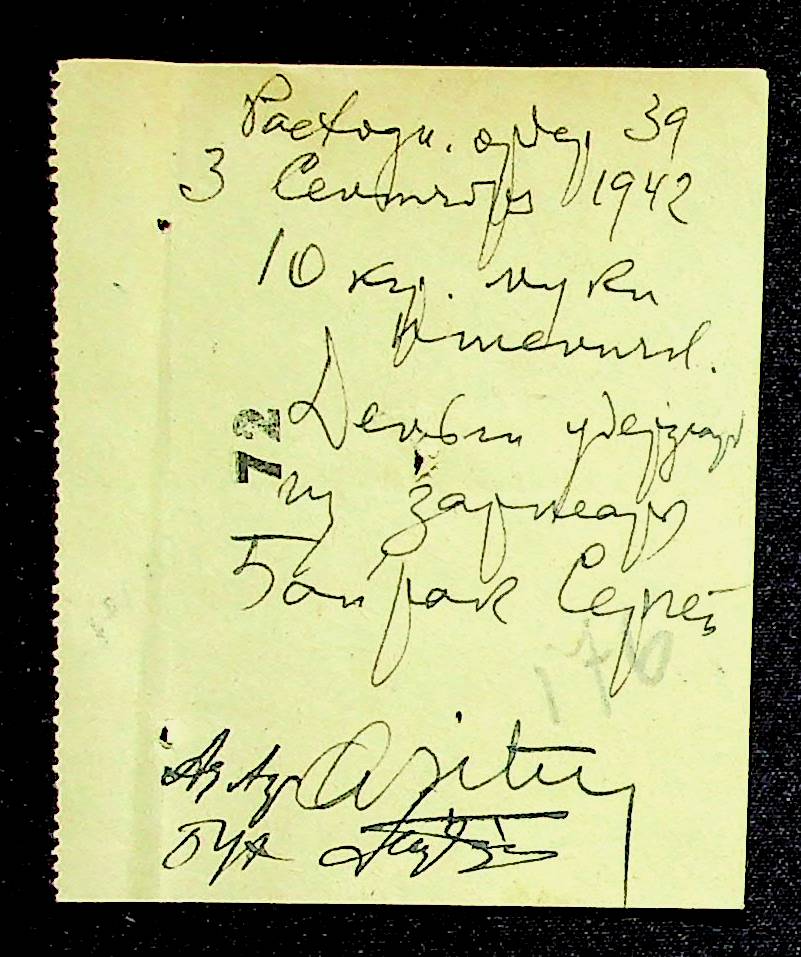 Расходн. ордер 39
3 Сентября 1942
10 кгр. муки
пшеничн.
Деньги удержать
72
из зарплаты
Байрак Сергей
176
БУХ